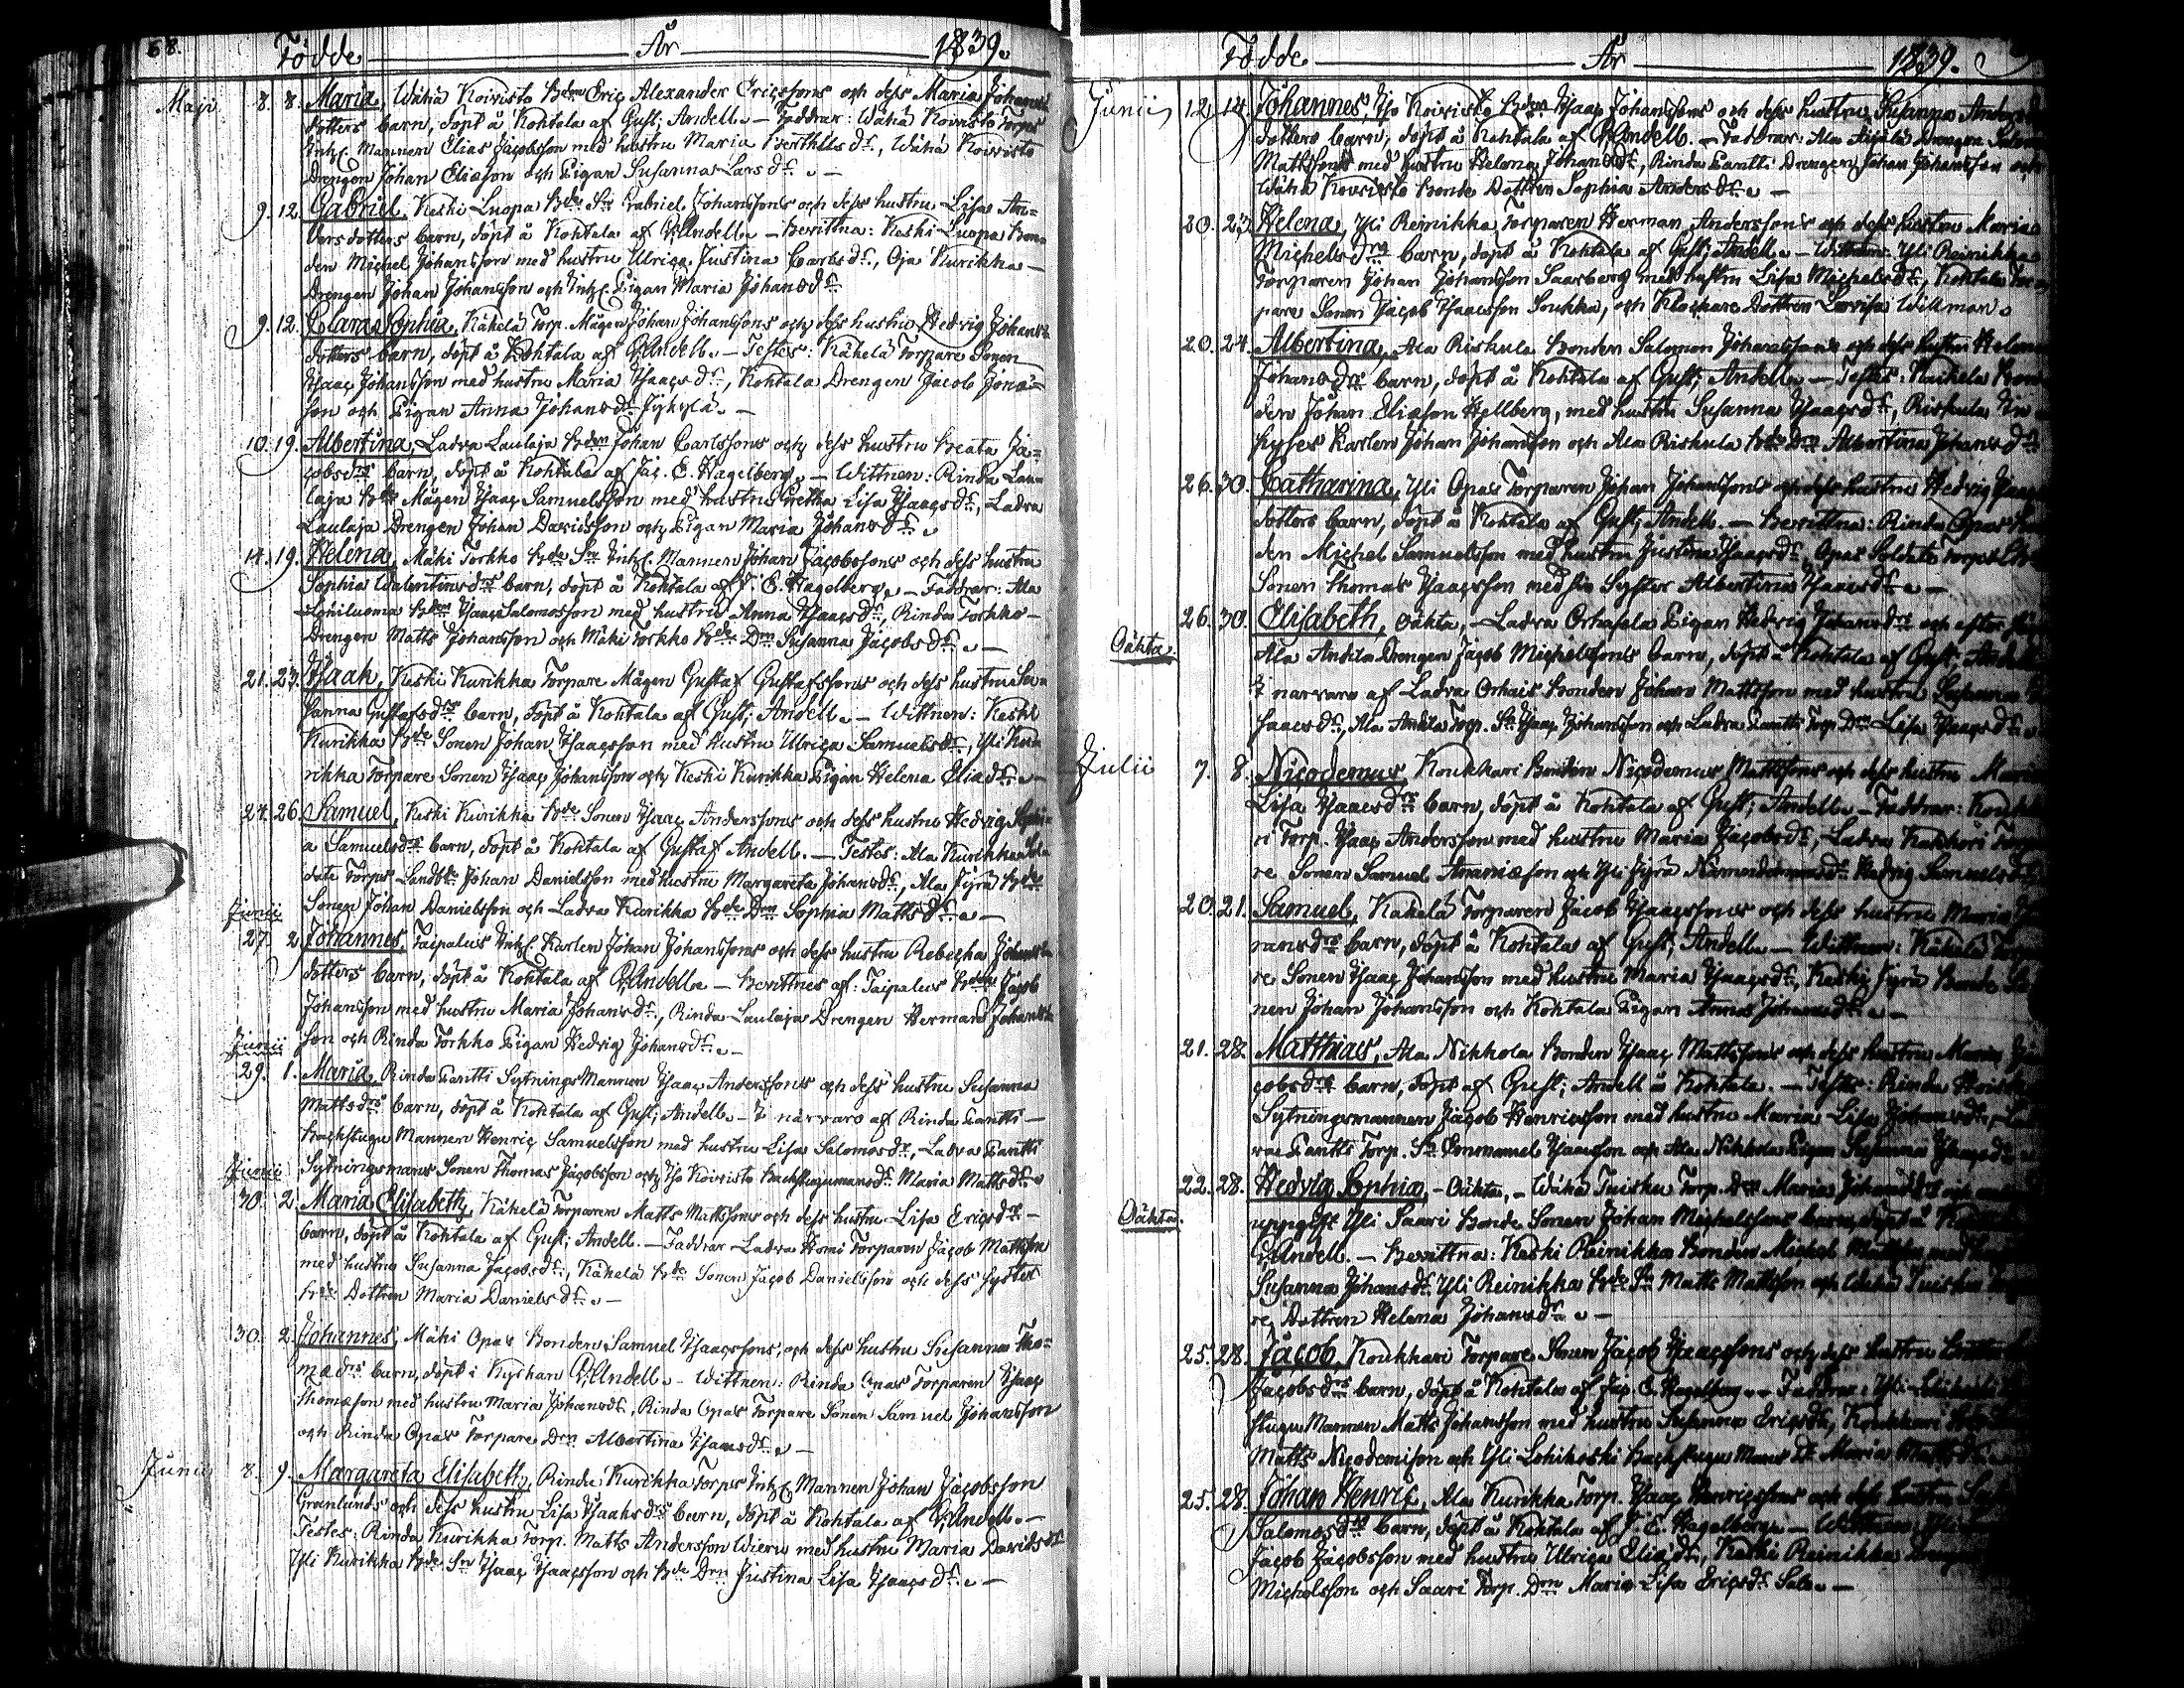 58.
Födde År 1839.
Maji 8. 8. Maria, Wähä Koivisto Bden Eric Alexander Ericssons och dess Maria Johans
dotters barn, döpt å Kohtala af Gust. Andell. — Faddrar: Wähä Koivisto Torps
Inh. Mannen Elias Jacobsson med hustru Maria Berthilsdr, Wähä Koivisto
Drengen Johan Eliason och Pigan Susanna Larsdr. —
9. 12. Gabriel, Keski Luopa Bde Sn Gabriel Johanssons och dess hustru Lisa An-
dersdotters barn, döpt å Kohtala af G. Andell. — Bevittna: Keski Luopa Bon-
den Michel Johansson med hustru Ulrica Justina Carlsdr, Oja Kurikka
Drengen Johan Johansson och Inh. Pigan Maria Johansdr.
9. 12. Clara Sophia, Käkelä Torp. Mågen Johan Johanssons och dess hustru Hedvig Johans
dotters barn, döpt å Kohtala af G. Andell. — Testes: Käkelä Torpare Sonen
Isaac Johansson med hustru Maria Isaacsdr, Kohtala Drengen Jacob Jona-
son och Pigan Anna Johansdr Jykylä. —
10. 19. Albertina, Ladva Laulaja Bden Johan Carlssons och dess hustru Beata Ja-
cobsdrs barn, döpt å Kohtala af Jac. E. Hagelberg. — Wittnen: Rinda Lau-
laja Bde Mågen Isaac Samuelsson med hustru Gretha Lisa Isaacsdr, Ladva
Laulaja Drengen Johan Davidsson och Pigan Maria Johansdr.
14. 19. Helena, Mäki Torkko Bde Sn Inh. Mannen Johan Jacobssons och dess hustru
Sophia Valentinsdrs barn, döpt å Kohtala af J. E. Hagelberg. — Faddrar: Ala
Bden Isaac Salomosson med hustru Anna Isaacsdr, Rinda Torkko
Drengen Matts Johansson och Mäki Torkko Bde Drn Susanna Jacobsdr. —
21. 23. Isaak, Keski Kurikka Torpare Mågen Gustaf Gustafssons och dess hustru Su-
sanna Gustafsdrs barn, döpt å Kohtala af Gust. Andell. — Wittnen: Keski
Kurikka Bde Sonen Johan Isaacsson med hustru Ulrica Samuelsdr, Yli Ku-
rikka Torpare Sonen Isaac Johansson och Keski Kurikka Pigan Helena Eliædr. —
24. 26. Samuel, Keski Kurikka Bde Sonen Isaac Anderssons och dess hustru Hedvig Sophi-
a Samuelsdrs barn, döpt å Kohtala af Gustaf Andell. — Testes: Ala Kurikka Sol-
date Torps Johan Danielsson med hustru Margareta Johansdr, Ala Jyrä Bde
Sonen Johan Danielsson och Ladva Kurikka Bde Drn Sophia Mattsdr. —
Junii
27. 2. Johannes, Taipalus Inh. Karlen Johan Johanssons och dess hustru Rebecka Johans
dotters barn, döpt å Kohtala af G. Andell. — Bevittnes af: Taipalus Bden Jacob
Johansson med hustru Maria Johansdr, Rinda Laulaja Drengen Herman Johans
son och Rinda Torkko Pigan Hedvig Johansdr. —
Junii
29. 1. Maria, Rinda Pantti Sytnings Mannen Isaac Anderssons och dess hustru Susanna
Mattsdrs barn, döpt å Kohtala af Gust. Andell. — I närvaro af Rinda Pantti
Backstugu Mannen Henric Samuelsson med hustru Lisa Salomosdr, Ladva Pantti
Sytningsmans Sonen Thomas Jacobsson och Iso Koivisto Backstugumansdr Maria Mattsdr.
Junii
30. 2. Maria Elisabeth, Käkelä Torparen Matts Mattssons och dess hustru Lisa Ericsdrs
barn, döpt å Kohtala af Gust. Andell. — Faddrar Ladva Homi Torparen Jacob Mattsson
med hustru Susanna Jacobsdr, Käkelä Bde Sonen Jacob Danielsson och dess syster
Bde Dottren Maria Danielsdr. —
30. 2. Johannes, Mäki Opas Bonden Samuel Isaacssons och dess hustru Susanna Tho-
mædrs barn, döpt i Kyrkan G. Andell. — Wittnen: Rinda Opas Torparen Isaac
Thomæson med hustru Maria Johansdr, Rinda Opas Torpare Sonen Samuel Johansson
och Rinda Opas Torpare Drn Albertina Isaacsdr. —
Junii 8. 9. Margareta Elisabeth, Rinda Kurikka Torps Inh. Mannen Johan Jacobsson
Grönlunds och dess hustru Lisa Isaaksdrs barn, döpt å Kohtala af G. Andell. —
Testes: Rinda Kurikka Torp. Matts Andersson Wieru med hustru Maria Davidsdr
Yli Kurikka Bde Sn Isaac Isaacsson och Bde Drn Justina Lisa Isaacsdr. —
Födde År 1839.
Junii 12. 14. Johannes, Iso Koivisto Bden Isaac Johanssons och dess hustru Susanna Anders
dotters barn, döpt å Kohtala af G. Andell. — Faddrar: Ala Drengen
Mattsson med hustru Helena Johansdr, Rinda Pantti Drengen Johan Johansson och
Wähä Koivisto Bonde Dottren Sophia Andersdr. —
20. 23. Helena, Yli Reinikka Torparen Herman Anderssons och dess hustru Maria
Michelsdrs barn, döpt å Kohtala af Gust. Andell. — Wittnen: Yli Reinikka
Torparen Johan Johansson Saarberg med hustru Lisa Michelsdr, Kohtala Tor-
pare Sonen Jacob Isaacsson Soukka, och Klockare Dottren Lovisa Wilkman.
20. 24. Albertina, Ala Riskula Bonden Salomon Johanssons och dess hustru Helena
Johansdrs barn, döpt å Kohtala af Gust. Andell. — Testes: Bon
den Johan Eliason Hellberg, med hustru Susanna Isaacsdr, Riskula In
hyses Karlen Johan Johansson och Ala Riskula Bde Drn Albertina Johansdr
26. 30. Catharina, Yli Opas Torparen Johan Johanssons och dess hustru Hedvig Isaacs
dotters barn, döpt å Kohtala af Gust. Andell. — Bevittna: Rinda Opas Bon
den Michel Samuelsson med hustru Justina Isaacsdr, Opas Soldate Torps
Sonen Thomas Isaacsson med sin Syster Albertina Isaacsdr. —
Oäkta. 26. 30. Elisabeth, oäkta, — Ladva Orhasela Pigan Hedvig Johansdrs och efter
Ala Anttila Drengen Jacob Michelssons barn, döpt å Kohtala af Gust. Andell
I närvaro af Ladva Bonden Johan Mattsson med hustru Susanna I
saacsdr, Ala Anttila Torp. Sn Isaac Johansson och Ladva Pantti Torp. Drn Lisa Isaacsdr.
Julii 7. 8. Nicodemus, Koukkari Bonden Nicodemus Mattssons och dess hustru Maria
Lisa Isaacsdrs barn, döpt å Kohtala af Gust. Andell. — Faddrar: Koukka
ri Torp. Isaac Andersson med hustru Maria Jacobsdr, Ladva Torpa
re Sonen Samuel Ananiæson och Yli Jyrä Nämndemansdr Hedvig Samuelsdr
20. 21. Samuel, Käkelä Torparen Jacob Isaacssons och dess hustru Maria
barn, döpt å Kohtala af Gust. Andell. — Wittnen: Käkelä Torpa
re Sonen Isaac Johansson med hustru Maria Isaacsdr, Keski Jyrä Bonde So
nen Johan Johansson och Kohtala Pigan Anna Johansdr. —
21. 28. Matthias, Ala Nikkola Bonden Isaac Mattssons och dess hustru Maria Ja
cobsdrs barn, döpt af Gust. Andell å Kohtala. — Testes: Rinda
Sytningsmannen Jacob Henricsson med hustru Maria Lisa Johansdr, Lad
va Pantti Torp. Sn Emmanuel Isaacsson och Ala Nikkola Pigan Susanna Isaacsdr
Oäkta. 22. 28. Hedvig Sophia, — Oäkta, — Wähä Tuisku Torp. Drn Maria Johansdrs och
uppgift Yli Saari Bonde Sonen Johan Michelssons barn, döpt å
G. Andell. — Bevittna: Keski Reinikka Bonden Michel Mattsson med
Susanna Johansdr, Yli Reinikka Bde Sn Matts Mattsson och Wähä Tuisku
re Dottren Helena Johansdr. —
25. 28. Jacob, Koukkari Torpare Sonen Jacob Isaacssons och dess hustru
Jacobsdrs barn, döpt å Kohtala af Jac. E. Hagelberg. — Faddrar: Yli
stugu Mannen Matts Johansson med hustru Susanna Ericsdr, Koukkari
Matts Nicodemison och Yli Lohikoski Backstugu Mans Dr Maria Mattsdr
25. 28. Johan Henric, Ala Kurikka Torp. Isaac Henricssons och dess hustru
Salomosdrs barn, döpt å Kohtala af J. E. Hagelberg. — Wittnen: Yli
Jacob Jacobsson med hustru Ulrica Eliædr, Keski Reinikka Drengen
Michelsson och Saari Torp. Drn Maria Lisa Ericsdr Salo. —